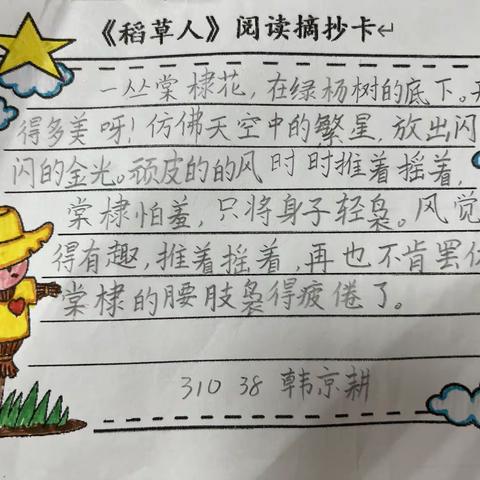 《稻草人》阅读摘抄卡↵
一丛棠棣花，在绿杨树的底下。开
得多美呀！仿佛天空中的繁星，放出闪
闪的金光。顽皮的的风时时推着摇着，
棠棣怕羞，只将身子轻袅。风觉
得有趣，推着摇着，再也不肯罢休
棠棣的腰肢袅得疲倦了。
310 38 韩京耕